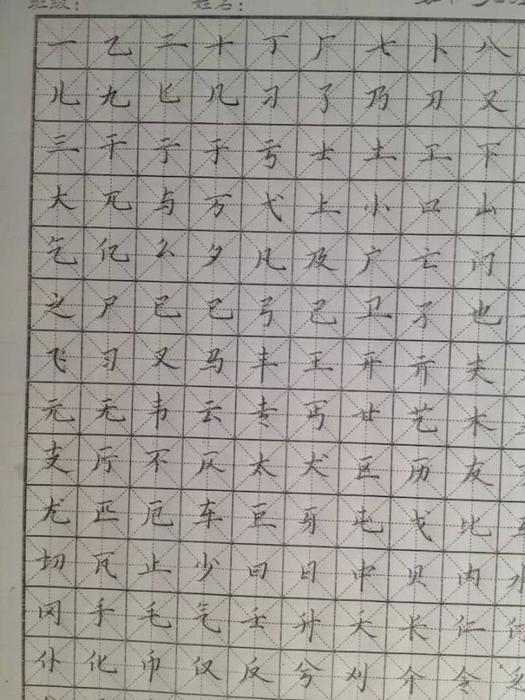 班级： 姓名：
一乙二十丁厂七卜八
儿九匕几刁了乃刀又
三干亍于亏士土工下
大兀与万弋上小口山
乞亿么夕凡及广亡门
之尸已巳弓己卫孑也
飞习叉马丰王开亓夫
元无韦云专丐廿艺木
支厅不仄太犬区历友
尤匹厄车巨牙屯戈比
切瓦止少曰日中贝内水
冈手毛气壬升夭长仁
仆化币仅反兮刈介